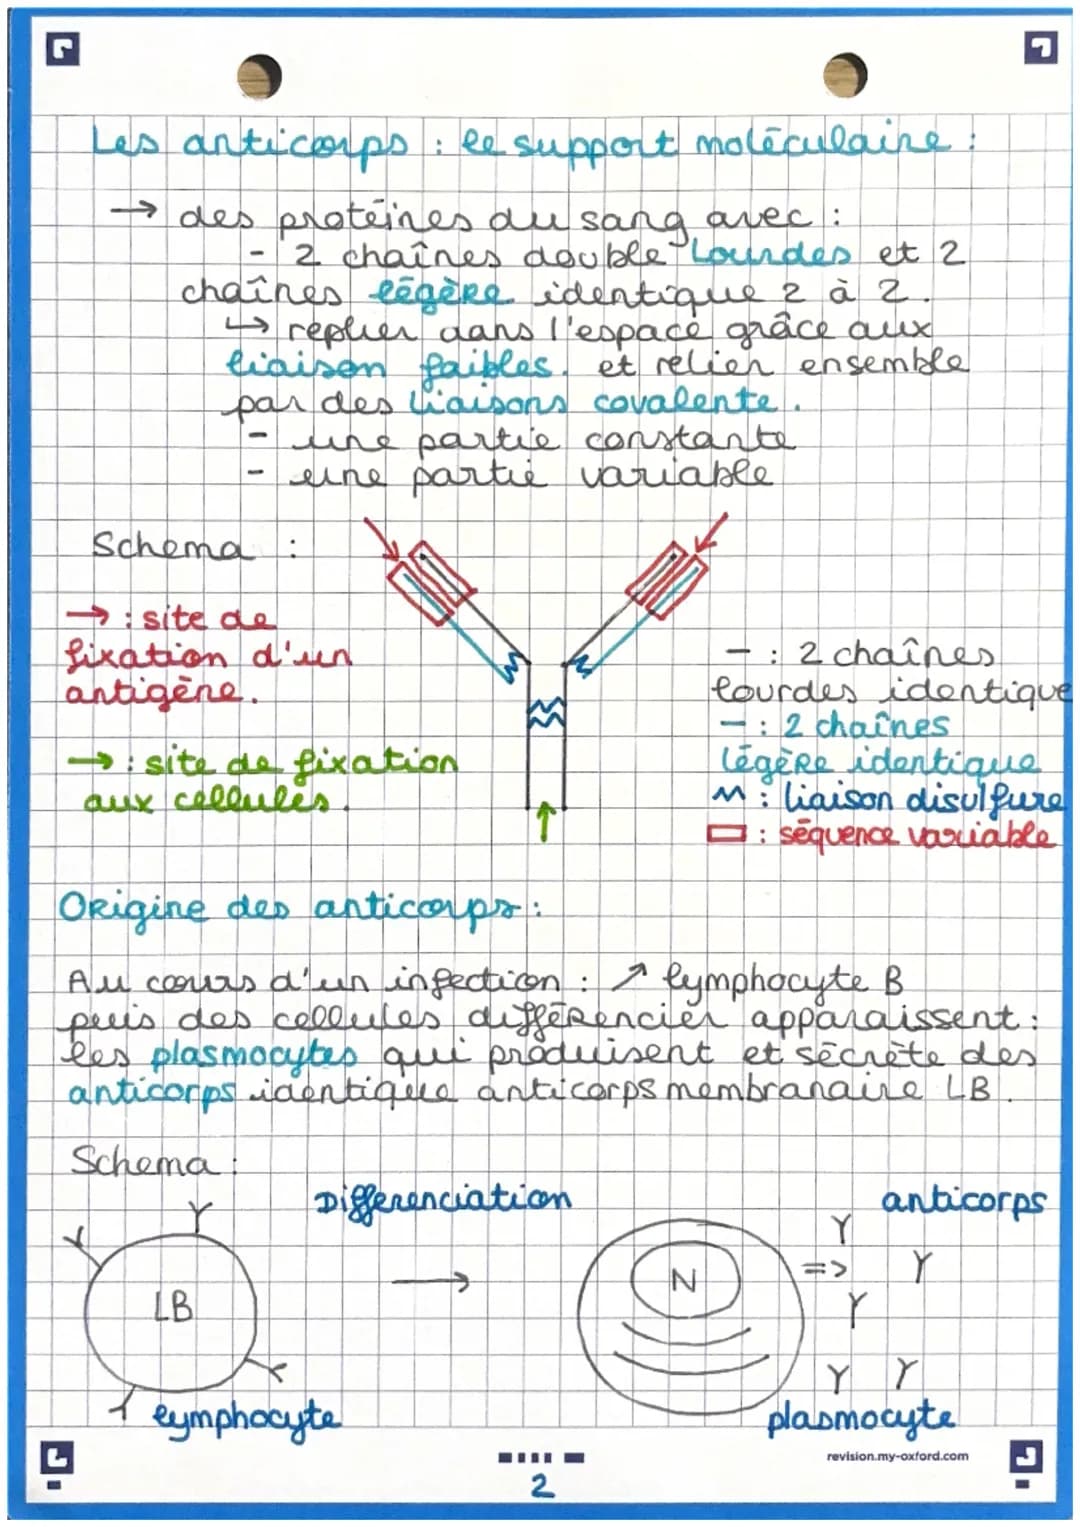 Les anticorps : le support moléculaire :
→ des protéines du sang avec :
- 2 chaînes double Lourdes et 2
chaînes légère identique 2 à 2.
↳ replier dans l'espace grâce aux
liaison faibles. et relier ensemble
par des liaisons covalente.
- une partie constante
- une partie variable
Schema :
→ : site de
fixation d'un
antigène.
→ : site de fixation
aux cellules.
- : 2 chaînes
lourdes identique
- : 2 chaînes
légère identique
: liaison disulfure
: séquence variable
Origine des anticorps :
Au cours d'un infection : ↗ lymphocyte B
puis des cellules différencier apparaissent :
les plasmocytes qui produisent et sécrète des
anticorps identique anticorps membranaire LB.
Schema :
Differenciation
anticorps
LB
→
N
=>
lymphocyte
plasmocyte
revision.my-oxford.com
2